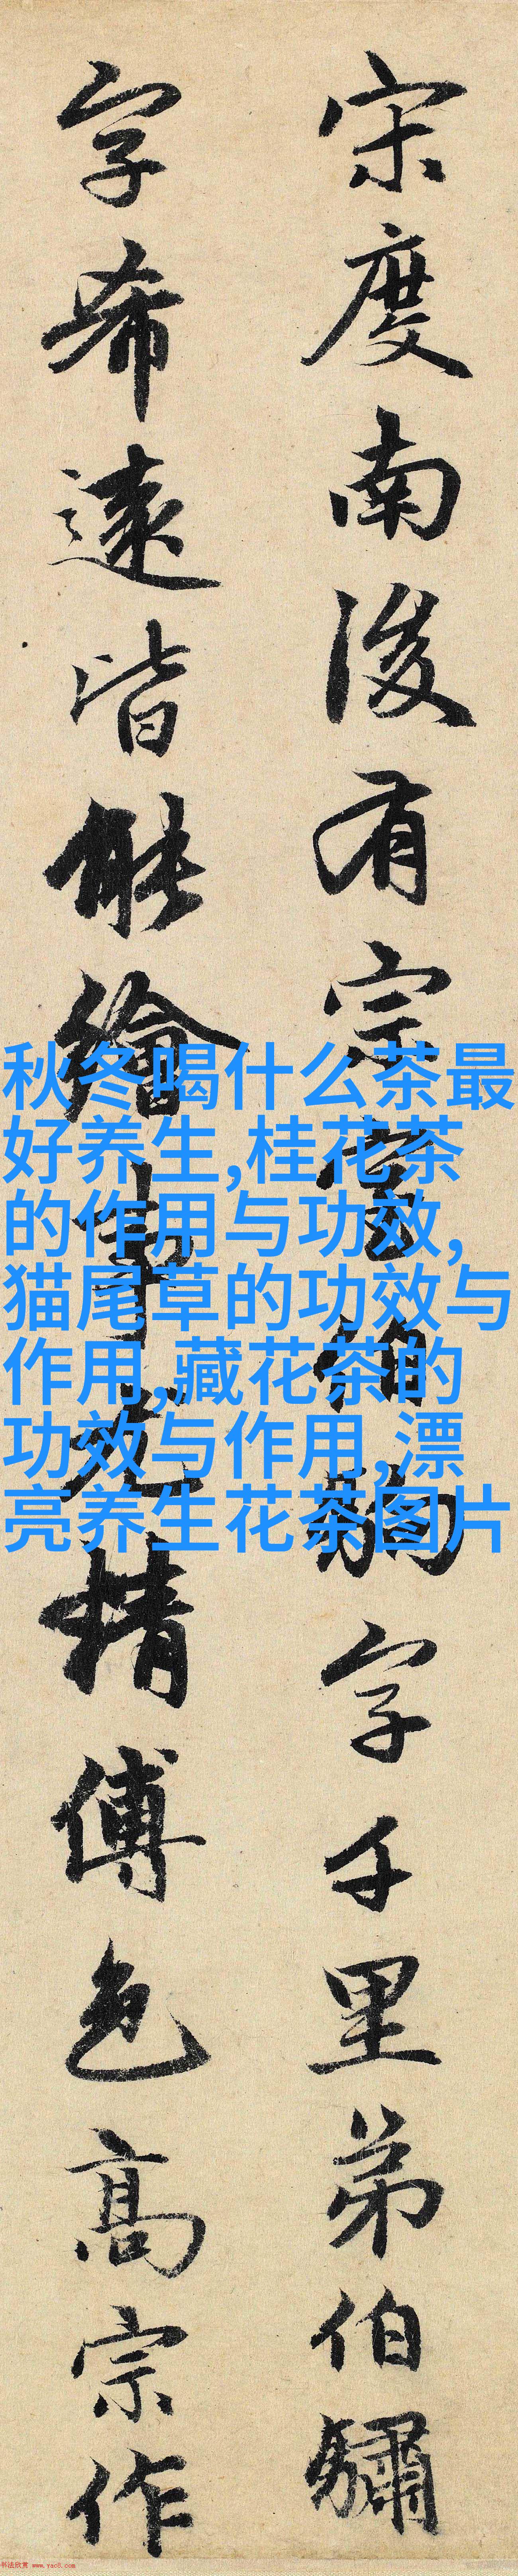 宋度南浚有宗室伯駒字千里弟伯驌
字希遠皆能繪事尤精傅色高宗作
秋冬喝什么茶最
好养生,桂花茶
的作用与功效,
猫尾草的功效与
作用,藏花茶的
功效与作用,漂
亮养生花茶图片
书法欣赏 www.yac8.com